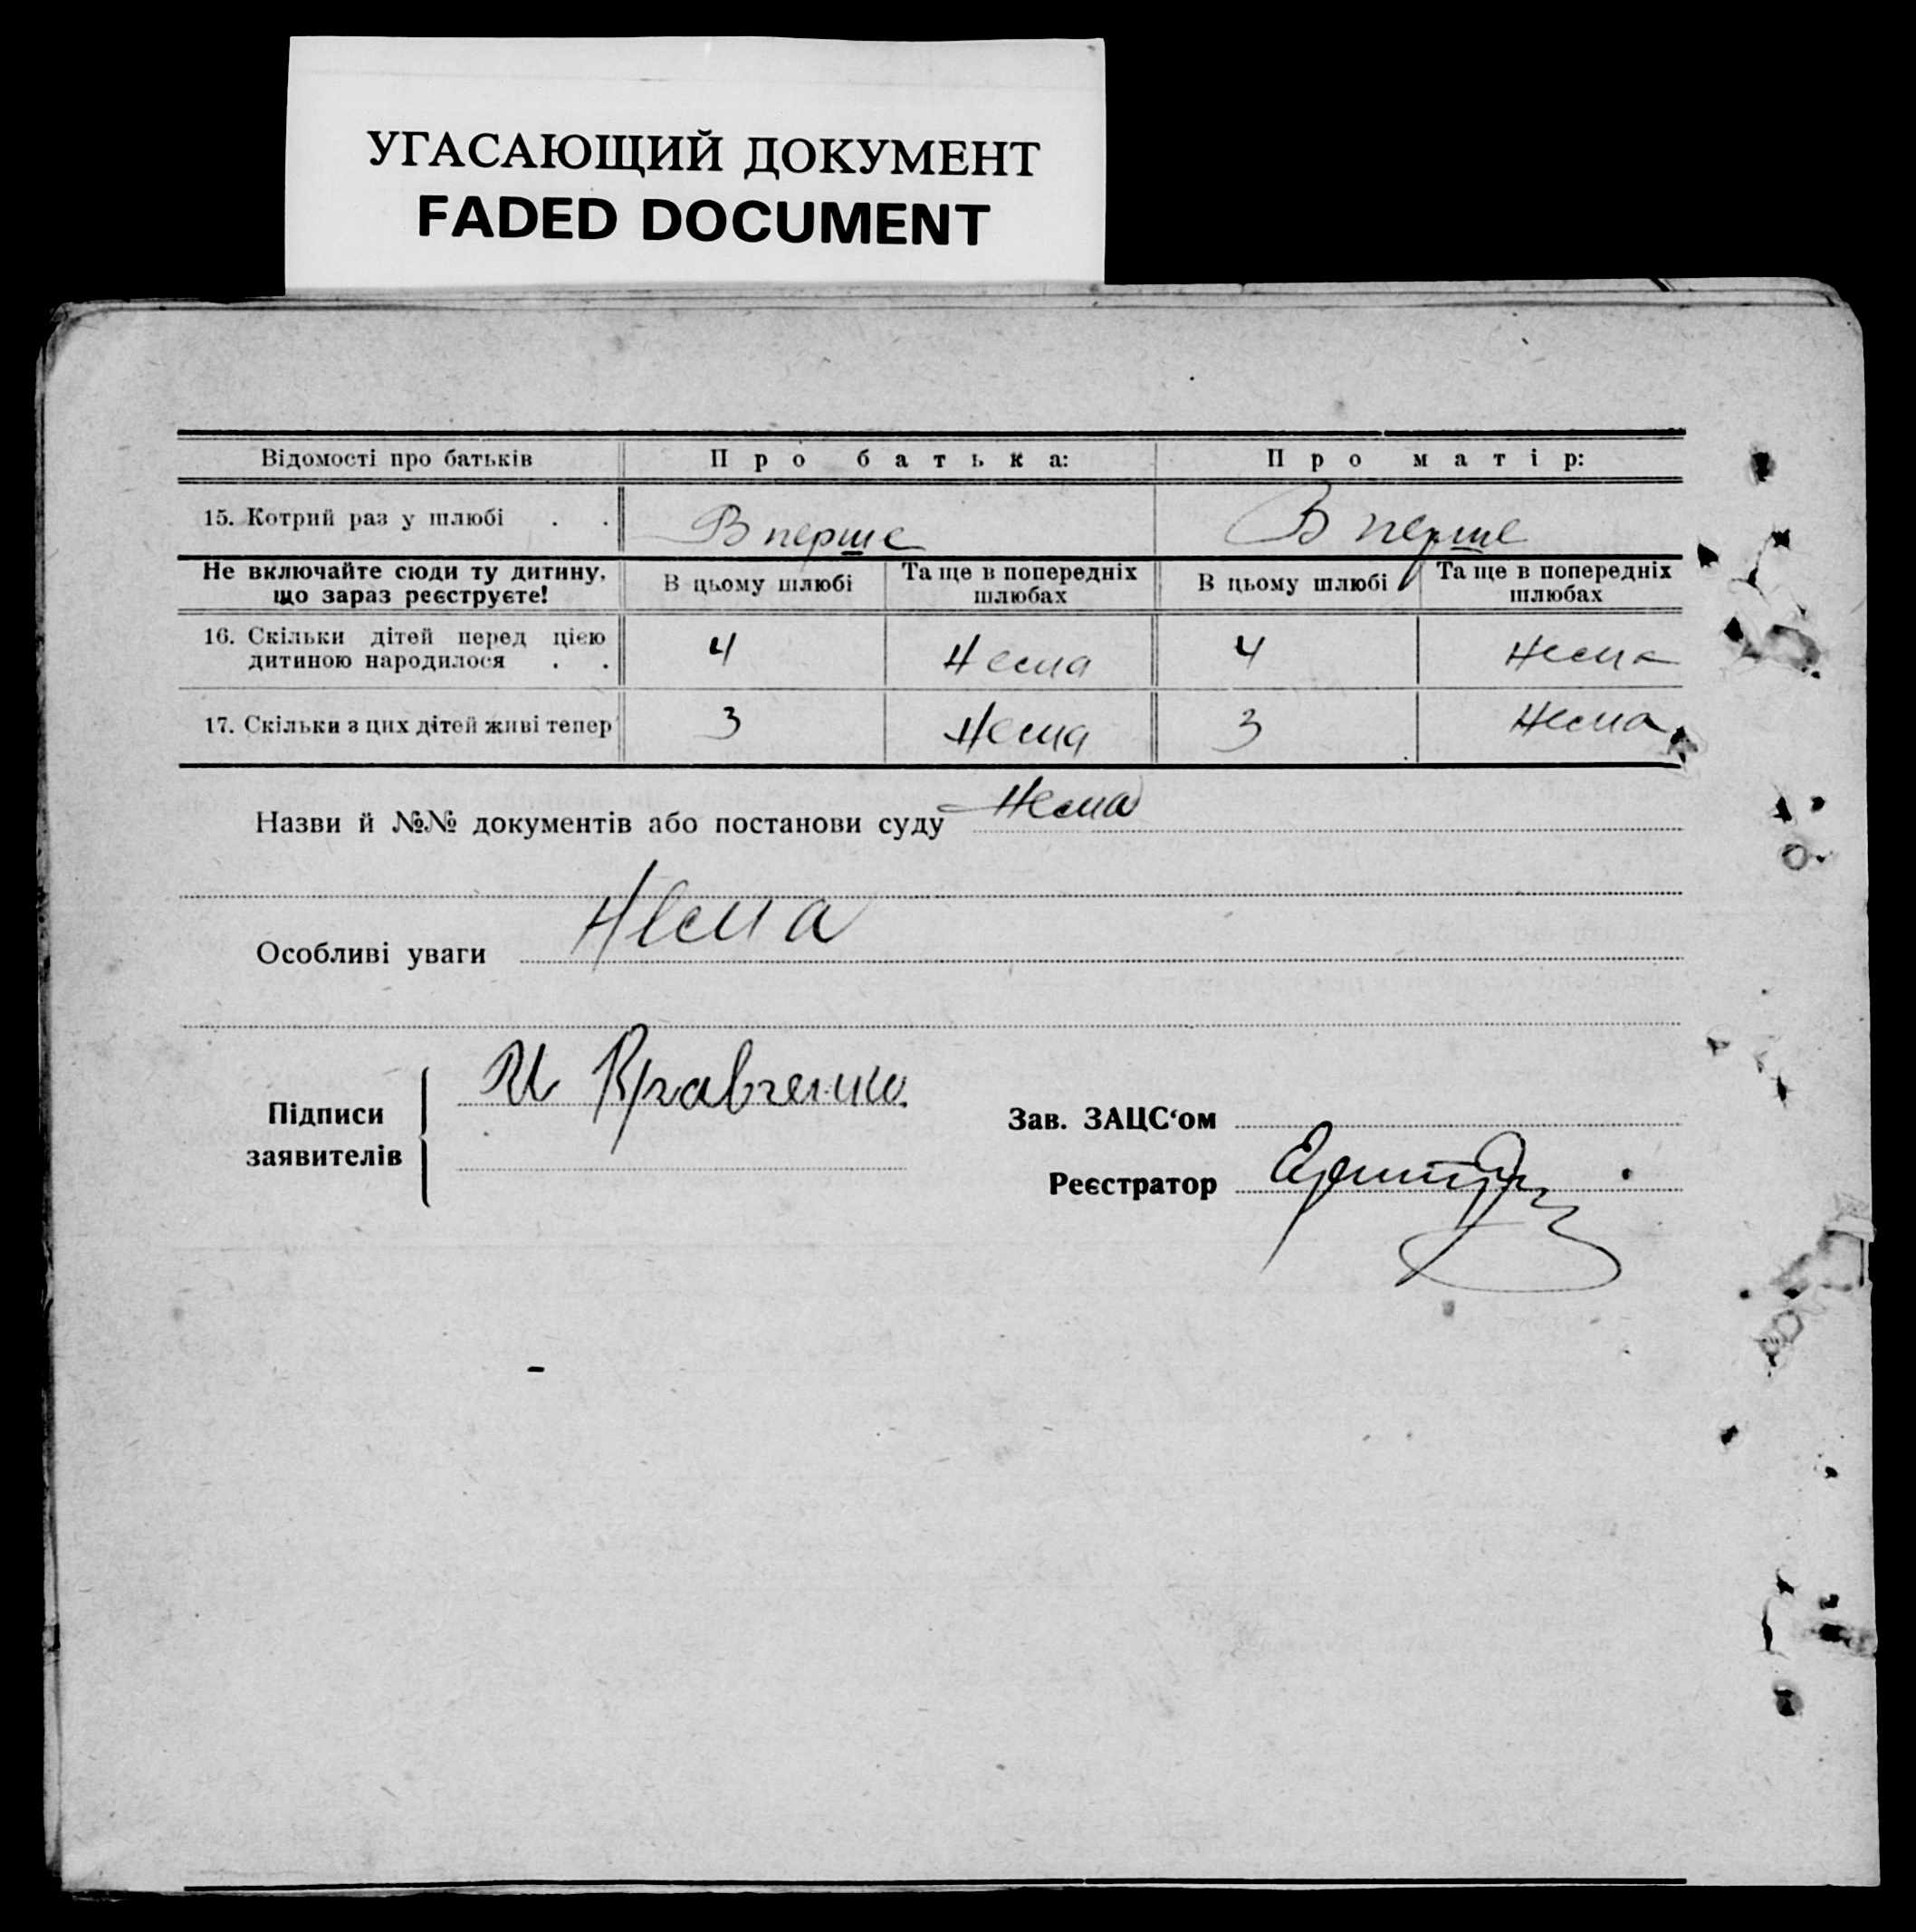 УГАСАЮЩИЙ ДОКУМЕНТ
FADED DOCUMENT
Відомості про батьків Про батька: Про матір:
15. Котрий раз у шлюбі . . Вперше Вперше
Не включайте сюди ту дитину, що зараз реєструєте! В цьому шлюбі Та ще в попередніх шлюбах В цьому шлюбі Та ще в попередніх шлюбах
16. Скільки дітей перед цією
дитиною народилося . . 4 Нема 4 Нема
17. Скільки з цих дітей живі тепер 3 Нема 3 Нема
Назви й №№ документів або постанови суду Нема
Особливі уваги Нема
Підписи заявителів И Кравченко
Зав. ЗАЦС‘ом
Реєстратор